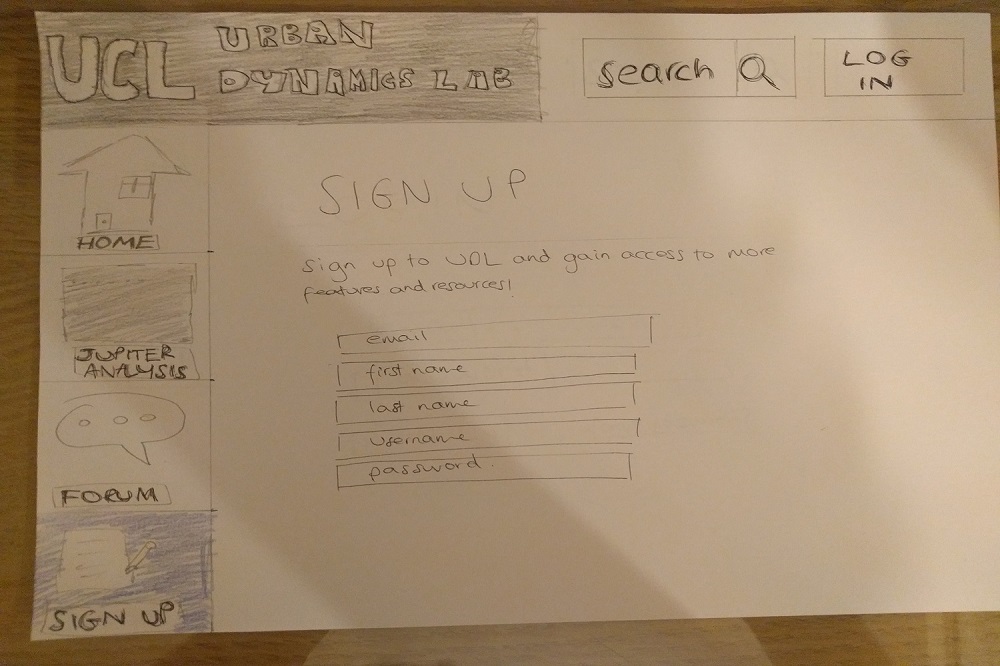 UCL
URBAN
DYNAMICS LAB
search
LOG
IN
HOME
JUPITER
ANALYSIS
FORUM
SIGN UP
SIGN UP
Sign up to UDL and gain access to more
features and resources!
email
first name
last name
username
password.